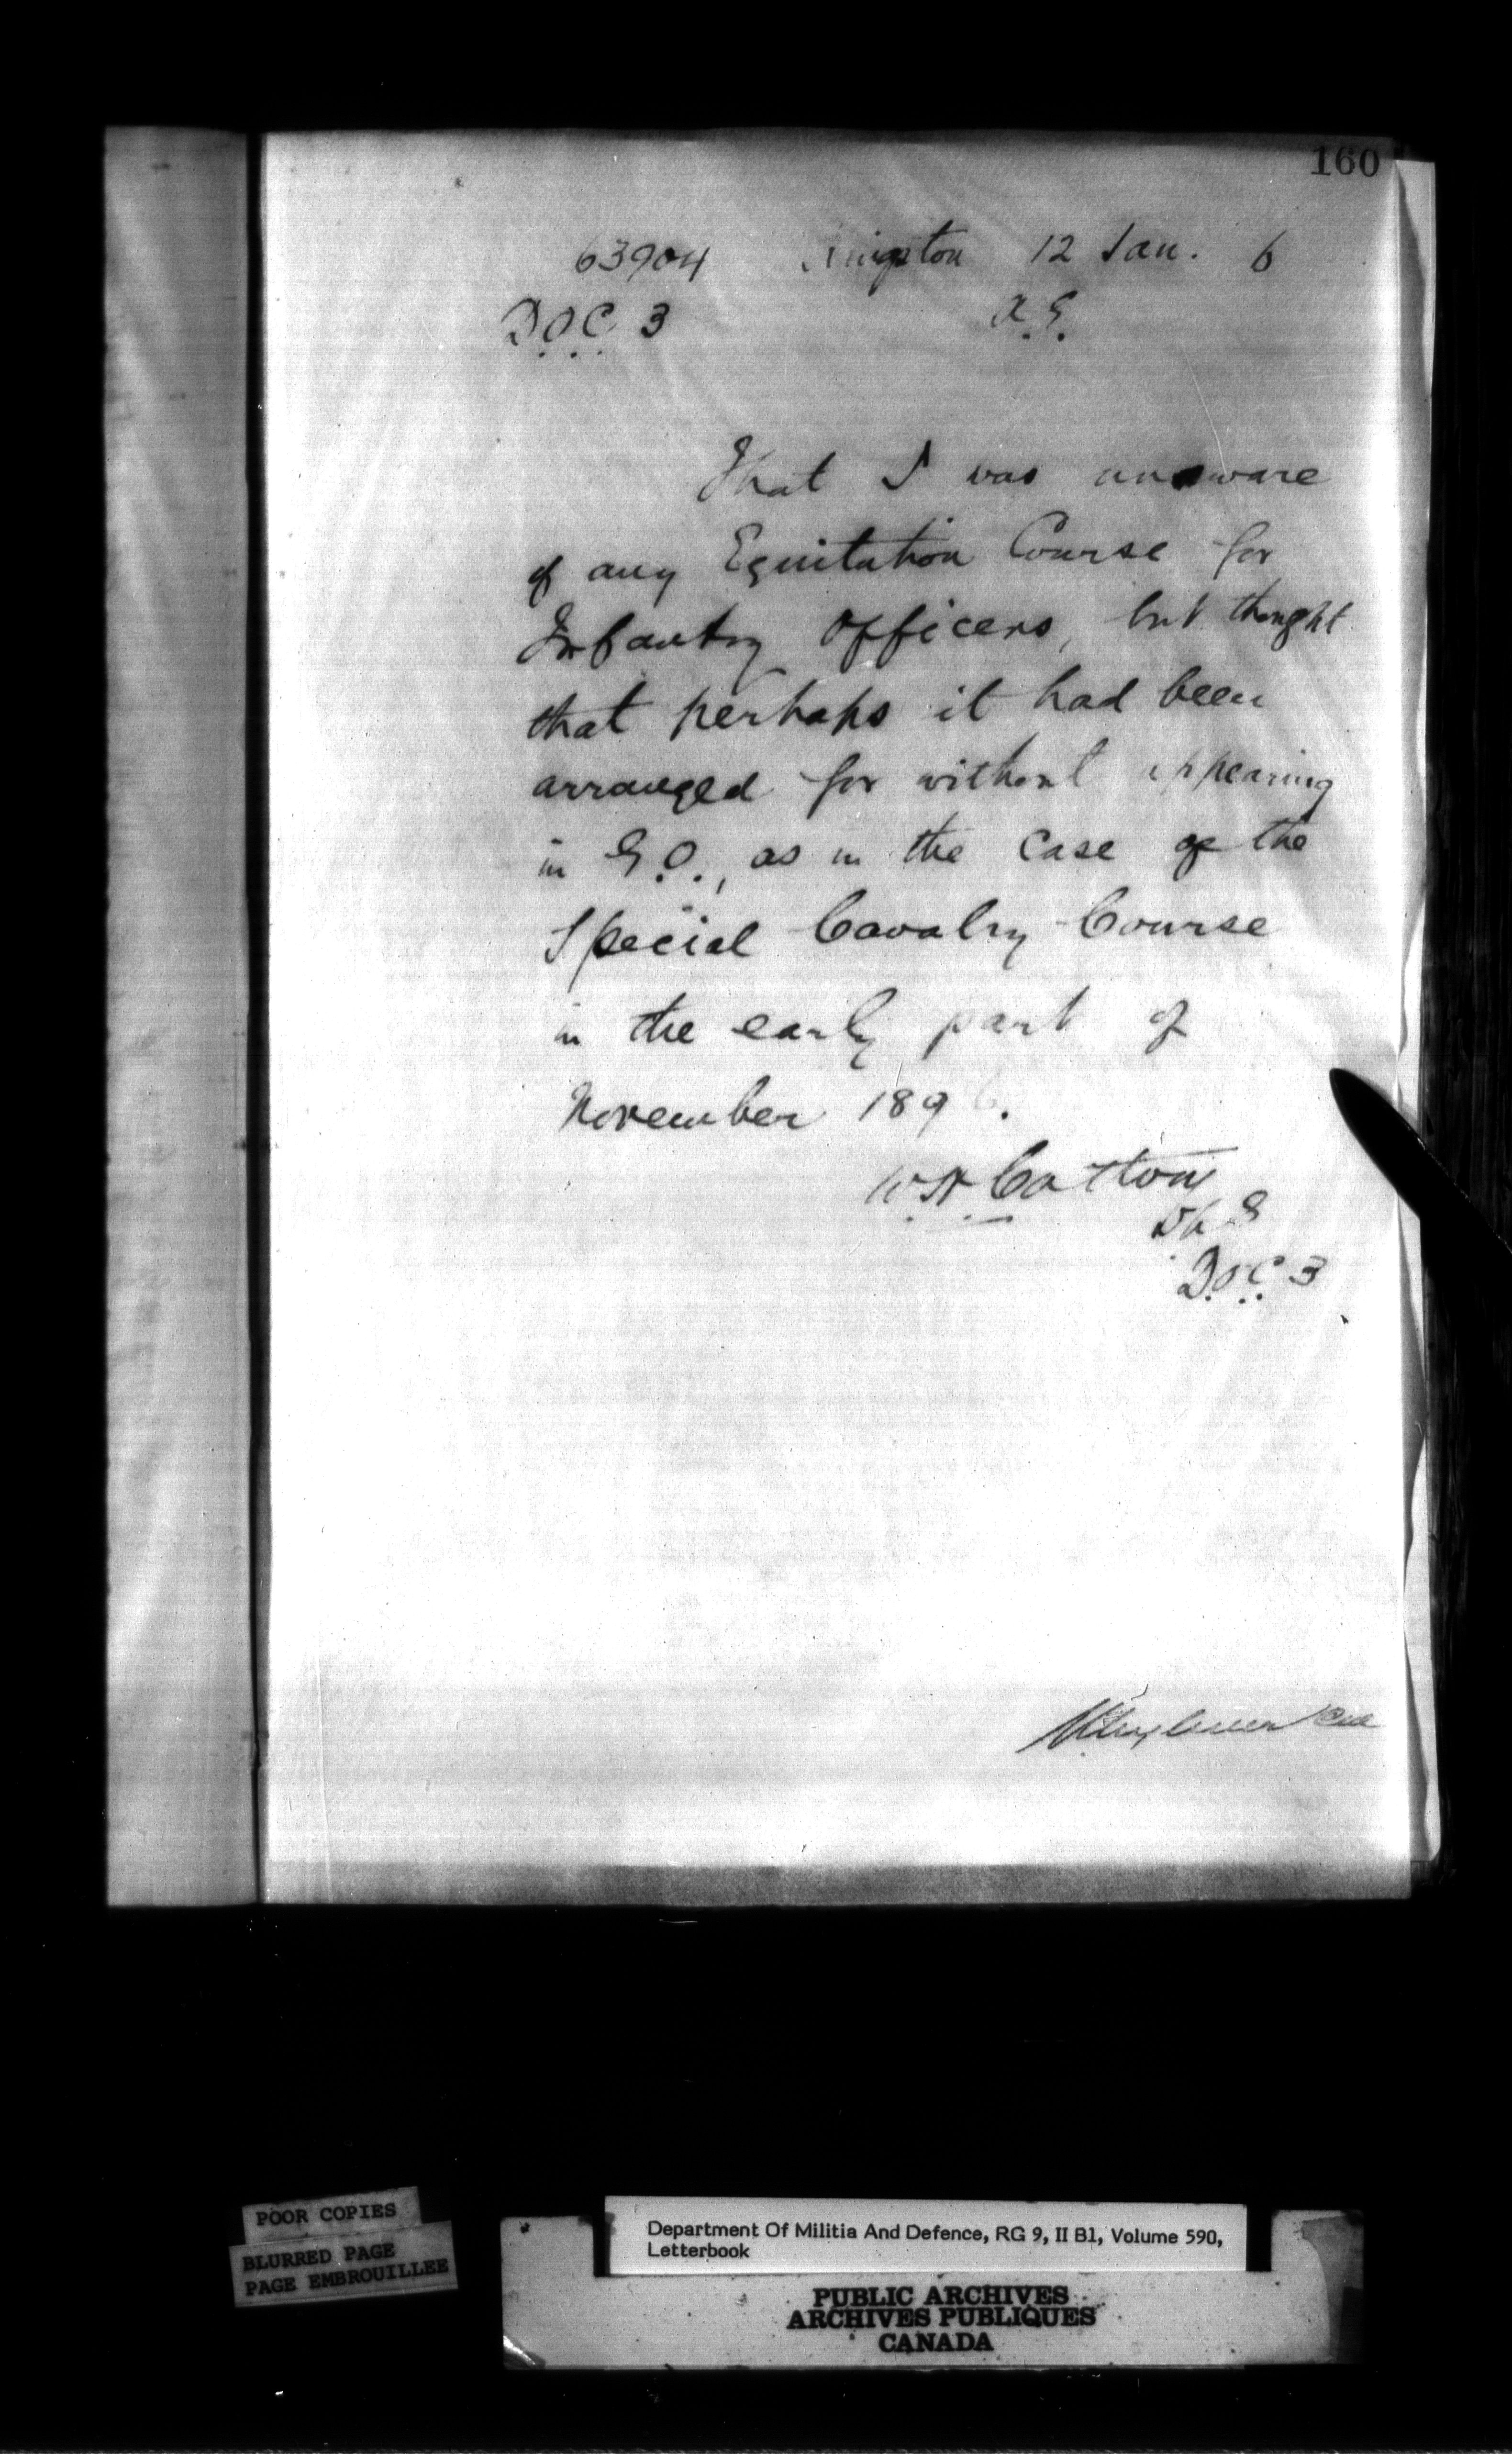 160
63904 Kingston 12 Jan. 6
D.O.C. 3 A.G.
That I was unaware
of any Equitation Course for
Infantry Officers, but thought
that perhaps it had been
arranged for without appearing
in G.O., as in the case of the
Special Cavalry Course
in the early part of
November 1896.
W H Cotton
D.O.C. 3
POOR COPIES
BLURRED PAGE
PAGE EMBROUILLEE
Department Of Militia And Defence, RG 9, II B1, Volume 590,
Letterbook
PUBLIC ARCHIVES
ARCHIVES PUBLIQUES
CANADA